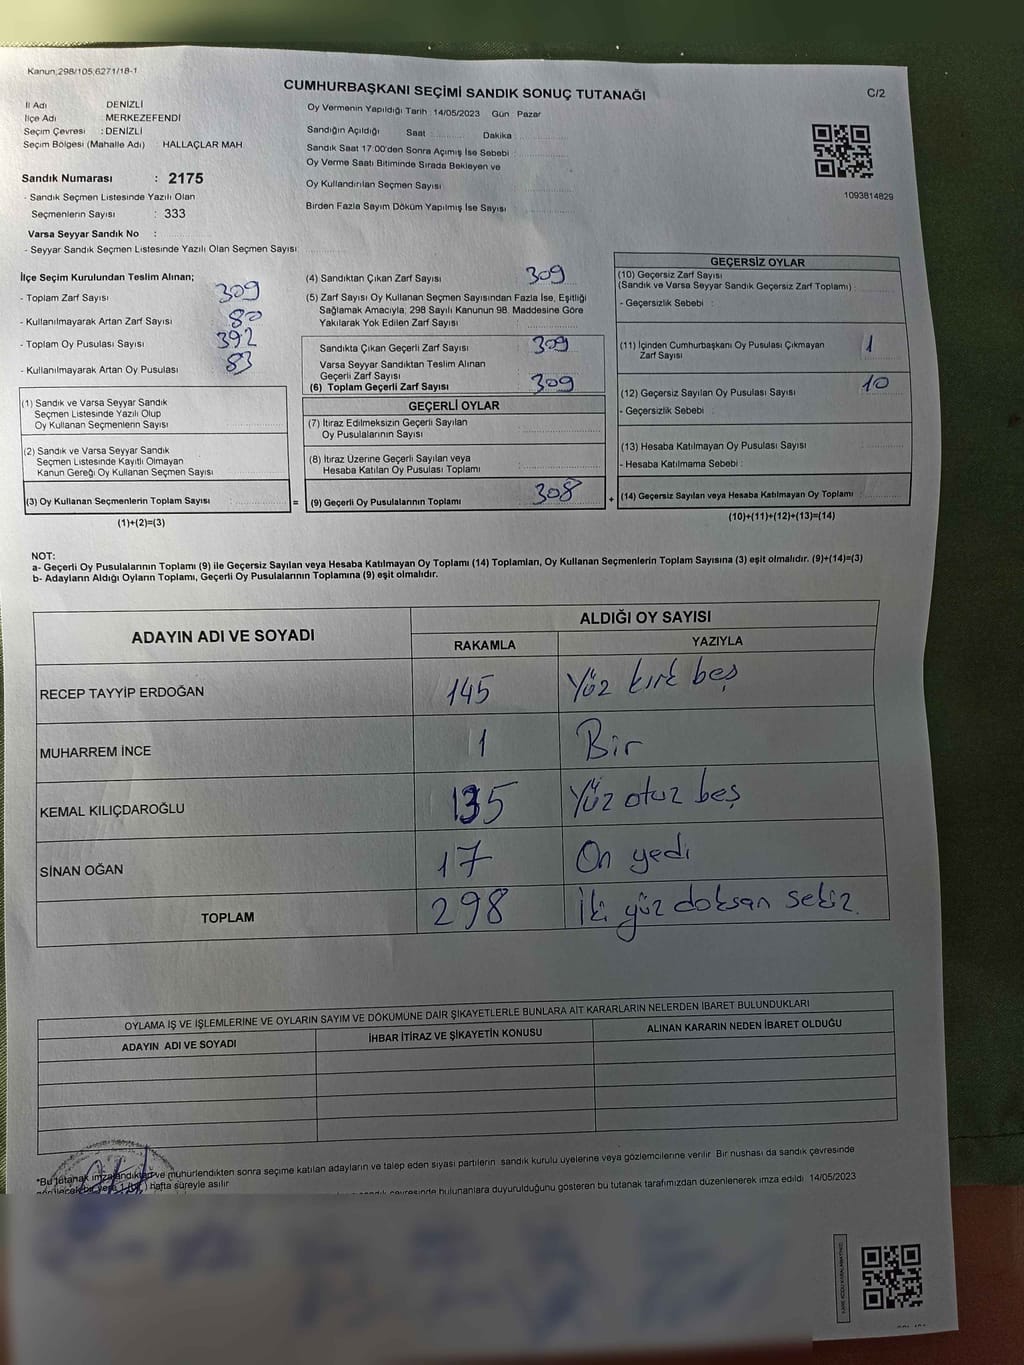 Kanun,298/105,6271/18-1
CUMHURBAŞKANI SEÇİMİ SANDIK SONUÇ TUTANAĞI
C/2
İl Adı DENİZLİ
İlçe Adı MERKEZEFENDİ
Seçim Çevresi : DENİZLİ
Seçim Bölgesi (Mahalle Adı) HALLAÇLAR MAH
Oy Vermenin Yapıldığı Tarih 14/05/2023 Gün Pazar
Sandığın Açıldığı Saat Dakika
Sandık Saat 17:00'den Sonra Açımış İse Sebebi
Oy Verme Saati Bitiminde Sırada Bekleyen ve
Oy Kullandırılan Seçmen Sayısı
Birden Fazla Sayım Döküm Yapılmış İse Sayısı
1093814829
Sandık Numarası : 2175
- Sandık Seçmen Listesinde Yazılı Olan
Seçmenlerin Sayısı : 333
Varsa Seyyar Sandık No :
- Seyyar Sandık Seçmen Listesinde Yazılı Olan Seçmen Sayısı
İlçe Seçim Kurulundan Teslim Alınan;
- Toplam Zarf Sayısı 309
- Kullanılmayarak Artan Zarf Sayısı 80
- Toplam Oy Pusulası Sayısı 392
- Kullanılmayarak Artan Oy Pusulası 83
(1) Sandık ve Varsa Seyyar Sandık
Seçmen Listesinde Yazılı Olup
Oy Kullanan Seçmenlerin Sayısı
(2) Sandık ve Varsa Seyyar Sandık
Seçmen Listesinde Kayıtlı Olmayan
Kanun Gereği Oy Kullanan Seçmen Sayısı
(3) Oy Kullanan Seçmenlerin Toplam Sayısı :
(1)+(2)=(3)
=
(4) Sandıktan Çıkan Zarf Sayısı 309
(5) Zarf Sayısı Oy Kullanan Seçmen Sayısından Fazla İse, Eşitliği
Sağlamak Amacıyla, 298 Sayılı Kanunun 98. Maddesine Göre
Yakılarak Yok Edilen Zarf Sayısı
Sandıkta Çıkan Geçerli Zarf Sayısı 309
Varsa Seyyar Sandıktan Teslim Alınan
Geçerli Zarf Sayısı
(6) Toplam Geçerli Zarf Sayısı 309
GEÇERLİ OYLAR
(7) İtiraz Edilmeksizin Geçerli Sayılan
Oy Pusulalarının Sayısı
(8) İtiraz Üzerine Geçerli Sayılan veya
Hesaba Katılan Oy Pusulası Toplamı
(9) Geçerli Oy Pusulalarının Toplamı 308
+
GEÇERSİZ OYLAR
(10) Geçersiz Zarf Sayısı
(Sandık ve Varsa Seyyar Sandık Geçersiz Zarf Toplamı) :
- Geçersizlik Sebebi :
(11) İçinden Cumhurbaşkanı Oy Pusulası Çıkmayan
Zarf Sayısı 1
(12) Geçersiz Sayılan Oy Pusulası Sayısı 10
- Geçersizlik Sebebi :
(13) Hesaba Katılmayan Oy Pusulası Sayısı
- Hesaba Katılmama Sebebi :
(14) Geçersiz Sayılan veya Hesaba Katılmayan Oy Toplamı
(10)+(11)+(12)+(13)=(14)
NOT:
a- Geçerli Oy Pusulalarının Toplamı (9) ile Geçersiz Sayılan veya Hesaba Katılmayan Oy Toplamı (14) Toplamları, Oy Kullanan Seçmenlerin Toplam Sayısına (3) eşit olmalıdır. (9)+(14)=(3)
b- Adayların Aldığı Oyların Toplamı, Geçerli Oy Pusulalarının Toplamına (9) eşit olmalıdır.
ADAYIN ADI VE SOYADI
ALDIĞI OY SAYISI
RAKAMLA YAZIYLA
RECEP TAYYİP ERDOĞAN 145 Yüz kırk beş
MUHARREM İNCE 1 Bir
KEMAL KILIÇDAROĞLU 135 Yüz otuz beş
SİNAN OĞAN 17 On yedi
TOPLAM 298 İki yüz doksan sekiz.
OYLAMA İŞ VE İŞLEMLERİNE VE OYLARIN SAYIM VE DÖKÜMÜNE DAİR ŞİKAYETLERLE BUNLARA AİT KARARLARIN NELERDEN İBARET BULUNDUKLARI
ADAYIN ADI VE SOYADI İHBAR İTİRAZ VE ŞİKAYETİN KONUSU ALINAN KARARIN NEDEN İBARET OLDUĞU
*Bu tutanak imzalandıktan ve mühürlendikten sonra seçime katılan adayların ve talep eden siyasi partilerin sandık kurulu üyelerine veya gözlemcilerine verilir Bir nüshası da sandık çevresinde
hafta süreyle asılır
sandık çevresinde bulunanlara duyurulduğunu gösteren bu tutanak tarafımızdan düzenlenerek imza edildi 14/05/2023